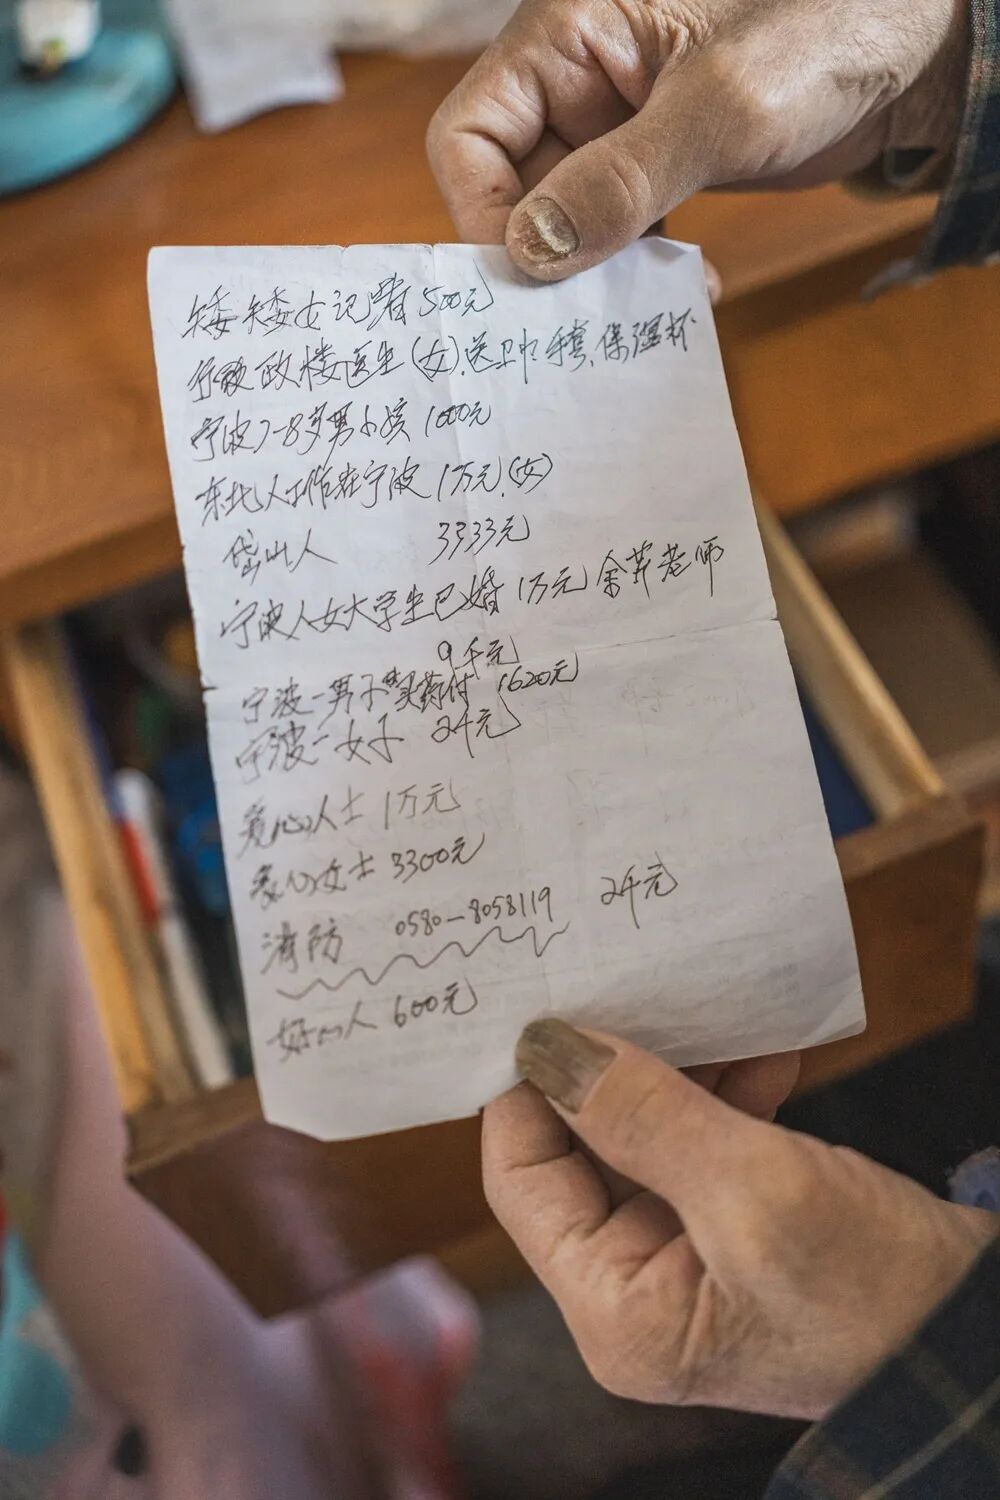 矮矮女记者500元
行政楼医生(女).送卫巾.手套.保温杯
宁波7-8岁男小孩1000元
东北人工作在宁波1万元.(女)
岱山人 3333元
宁波人女大学生已婚1万元 余芽老师
9千元
宁波一男子买药付1620元
宁波一女子 2千元
爱心人士 1万元
爱心女士 3300元
消防 0580-8058119 2千元
好心人 600元